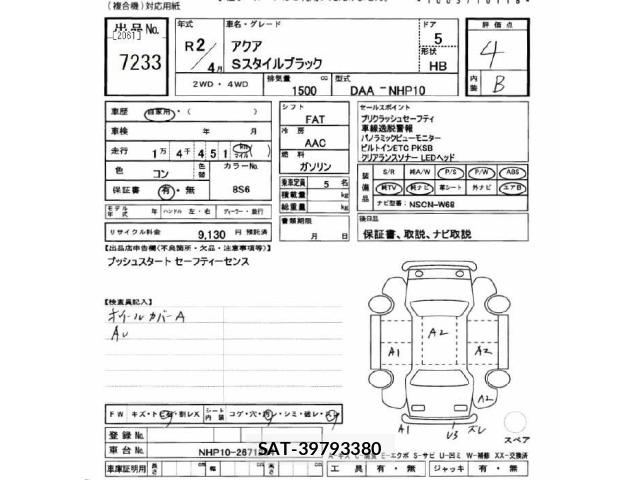 (複合機)対応用紙
出品No.
[2061]
7233
年式
R2/4月
車名・グレード
アクア
Sスタイルブラック
ドア
5
形状
HB
評価点
4
内装
B
2WD・4WD
排気量 cc
1500
型式
DAA-NHP10
車歴 自家用・( )
車検 年 月
走行 1万4千451 km マイル
色 コン
色替
カラーNo.
8S6
保証書 有・無
モデル年式 年 ハンドル 左・右 ディーラー・並行
リサイクル料金 9,130 円 預託済
シフト
FAT
冷房
AAC
燃料
ガソリン
乗車定員 5 名
積載量 kg
総重量 kg
書類期限
月 日
セールスポイント
プリクラッシュセーフティ
車線逸脱警報
パノラミックビューモニター
ビルトインETC PKSB
クリアランスソナー LEDヘッド
装備品
S/R 純A/W P/S P/W ABS
純TV 純ナビ 革シート 外ナビ エアB
ナビ型番: NSCN-W68
後日品
保証書、取説、ナビ取説
【出品店申告欄(不良箇所・欠品・注意事項等)】
プッシュスタート セーフティーセンス
【検査員記入】
ホイールカバーA
A2
A1
A2
A2
A1
U3
ズレ
スペア
FW キズ・
シート内装 コゲ・穴・
・シミ・破レ・スレ
登録No.
車台No.
NHP10-2671
SAT-39793380
E-エクボ S-サビ U-凹ミ W-補修 XX-交換済
車庫証明用 長さ cm 幅 cm 高さ cm
工具 有・無 ジャッキ 有・無